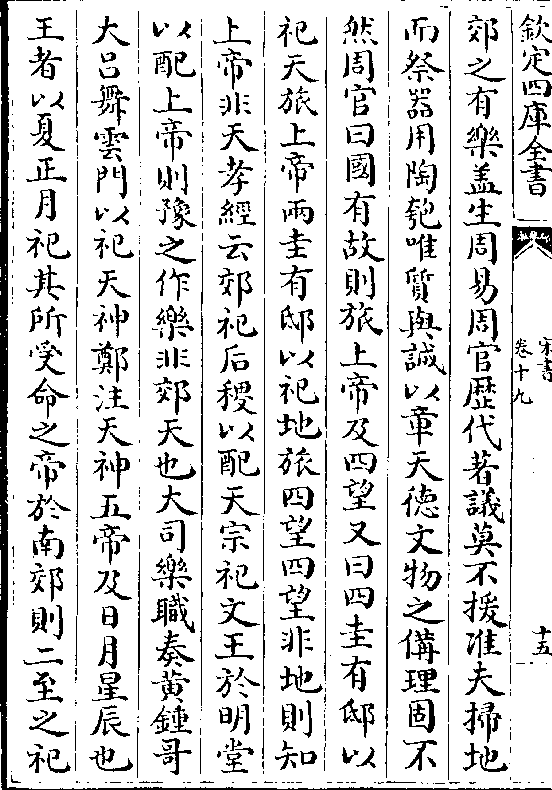 欽定四庫全書
宋書
卷十九
十五
郊之有樂盖生周易周官歴代著議莫不援准夫掃地
而祭器用陶匏唯質與誠以章天德文物之備理固不
然周官曰國有故則旅上帝及四望又曰四圭有邸以
祀天旅上帝兩圭有邸以祀地旅四望四望非地則知
上帝非天孝經云郊祀后稷以配天宗祀文王於明堂
以配上帝則豫之作樂非郊天也大司樂職奏黃鍾哥
大吕舞雲門以祀天神鄭注天神五帝及日月星辰也
王者以夏正月祀其所受命之帝於南郊則二至之祀